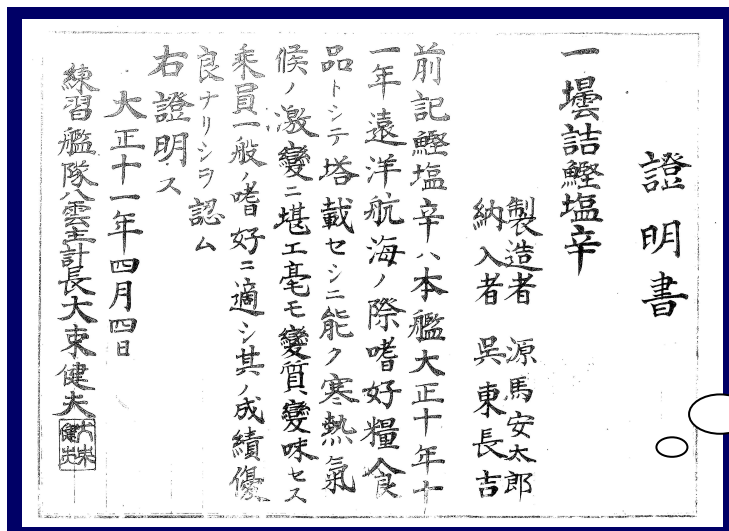 證明書
一壜詰鰹塩辛
製造者 源馬安太郎
納入者 呉東長吉
前記鰹塩辛ハ本艦大正十年十
一年遠洋航海ノ際嗜好糧食
品トシテ塔載セシニ能ク寒熱氣
候ノ激變ニ堪エ毫モ變質變味セス
乘員一般ノ嗜好ニ適シ其ノ成績優
良ナリシヲ認ム
右證明ス
大正十一年四月四日
練習艦隊八雲主計長大束健夫